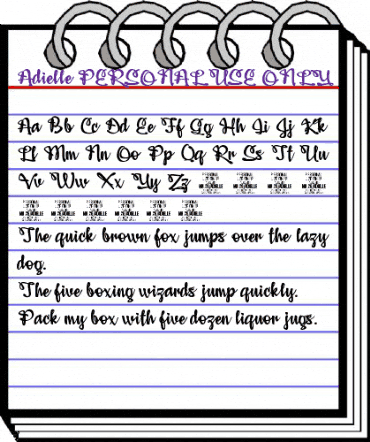 Adielle PERSONAL USE ONLY
Aa Bb Cc Dd Ee Ff Gg Hh Ii Jj Kk
Ll Mm Nn Oo Pp Qq Rr Ss Tt Uu
Vv Ww Xx Yy Zz
The quick brown fox jumps over the lazy
dog.
The five boxing wizards jump quickly.
Pack my box with five dozen liquor jugs.